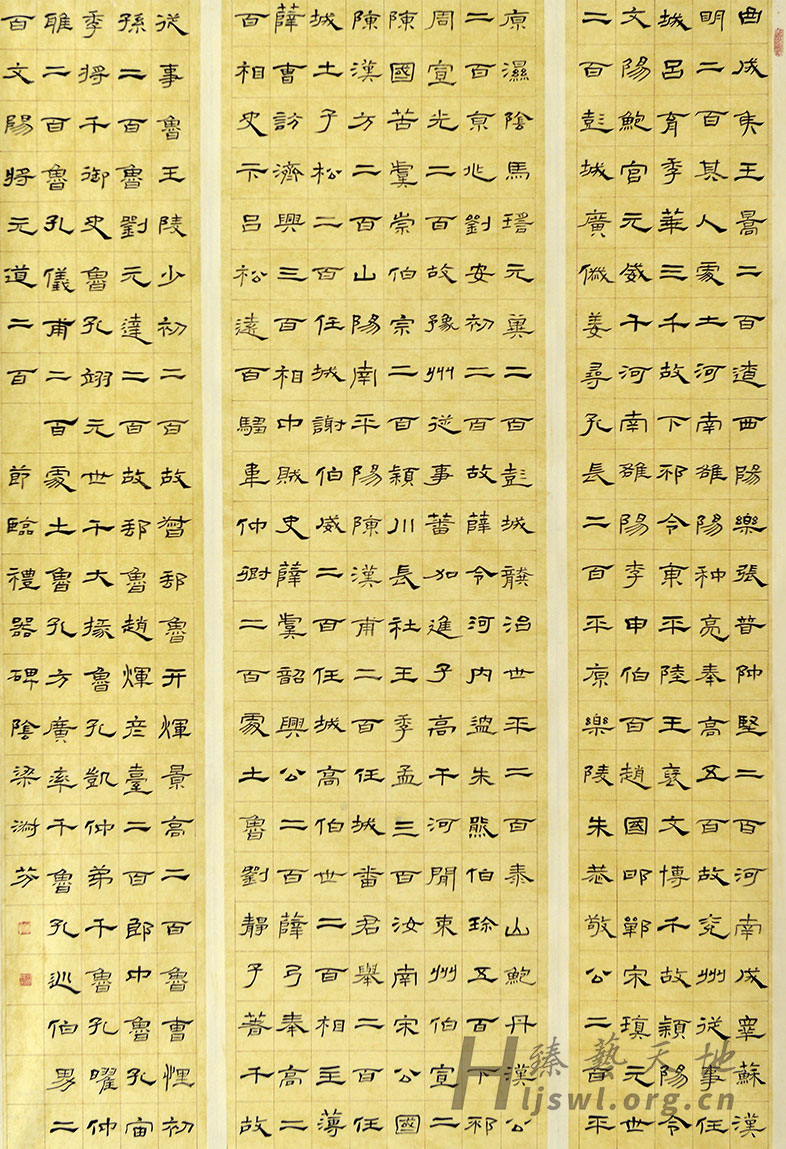 曲成侯王暠二百遼西陽樂張普仲堅二百河南成睪蘇漢
明二百其人處士河南雒陽种亮奉高五百故兖州從事任
城呂育季華三千故下邳令東平陸王褒文博千故潁陽令
文陽鮑宮元威千河南雒陽李申伯百趙國邯鄲宋瑱元世
二百彭城廣戚姜尋孔長二百平原樂陵朱恭敬公二百平
原濕陰馬瑤元冀二百彭城龔治世平二百泰山鮑丹漢公
二百京兆劉安初二百故薛令河內溫朱熊伯珍五百下邳
周宣光二百故豫州從事蕃加進子高千河閒東州伯宣二
陳國苦虞崇伯宗二百潁川長社王季孟三百汝南宋公國
陳漢方二百山陽南平陽陳漢甫二百任城番君舉二百任
城土子松二百任城謝伯威二百任城高伯世二百相主薄
薛曹訪濟興三百相中賊史薛虞韶興公二百薛弓奉高二
百相史卞呂松遠百騶韋仲卿二百處士魯劉靜子著千故
從事魯王陵少初二百故督郵魯开煇景高二百魯曹悝初
孫二百魯劉元達二百故郵魯趙煇彥臺二百郎中魯孔宙
季將千御史魯孔翊元世千大掾魯孔凱仲弟千魯孔曜仲
雒二百魯孔儀甫二百處士魯孔方廣率千魯孔巡伯男二
百文陽將元道二百 節臨禮器碑陰梁澍芬
臻藝天地
Hljswl.org.cn